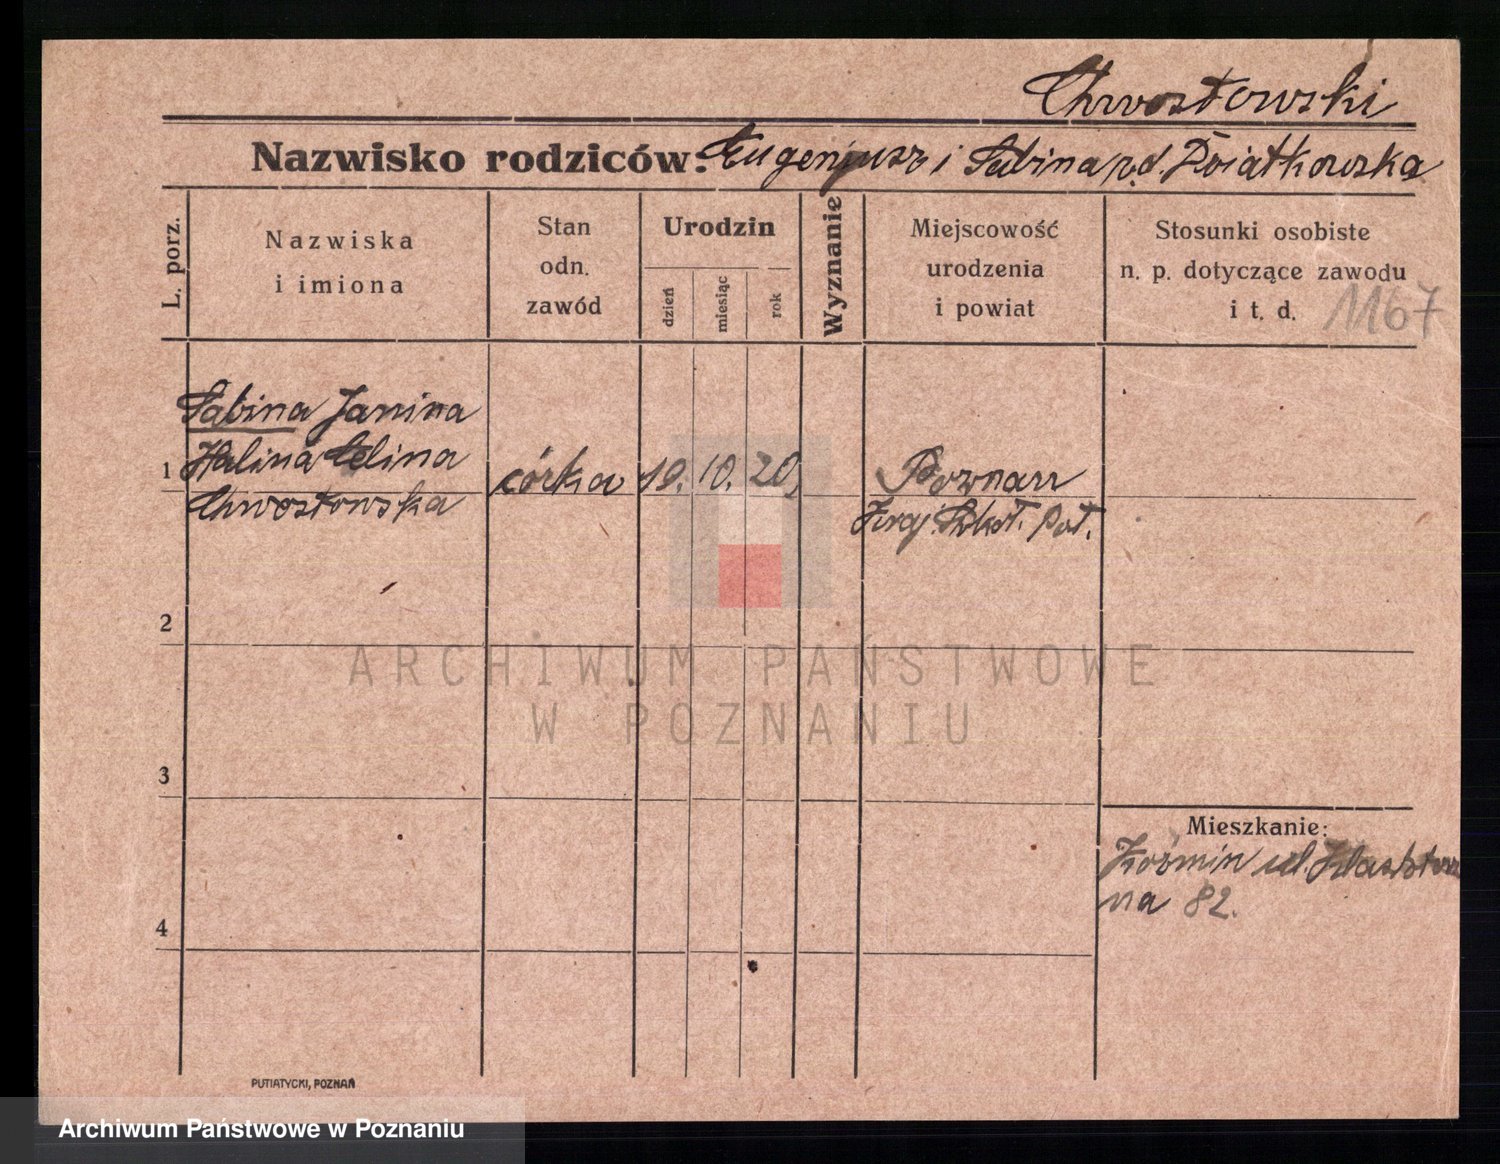 Chrvostowski
Nazwisko rodziców: Eugenjusz i Sabina rd.
L. porz.
Nazwiska
i imiona
Stan
odn.
zawód
Urodzin
dzień
miesiąc
rok
Wyznanie
Miejscowość
urodzenia
i powiat
Stosunki osobiste
n. p. dotyczące zawodu
i t. d.
1167
Sabina Janina
1 Halina Celina córka 19. 10. 20, Poznań
Chwostowska
Pol.
2
ARCHIWUM PAŃSTWOWE
W POZNANIU
3
Mieszkanie:
Koźmin ul. Klasztor
na 82.
4
PUTIATYCKI, POZNAŃ
Archiwum Państwowe w Poznaniu